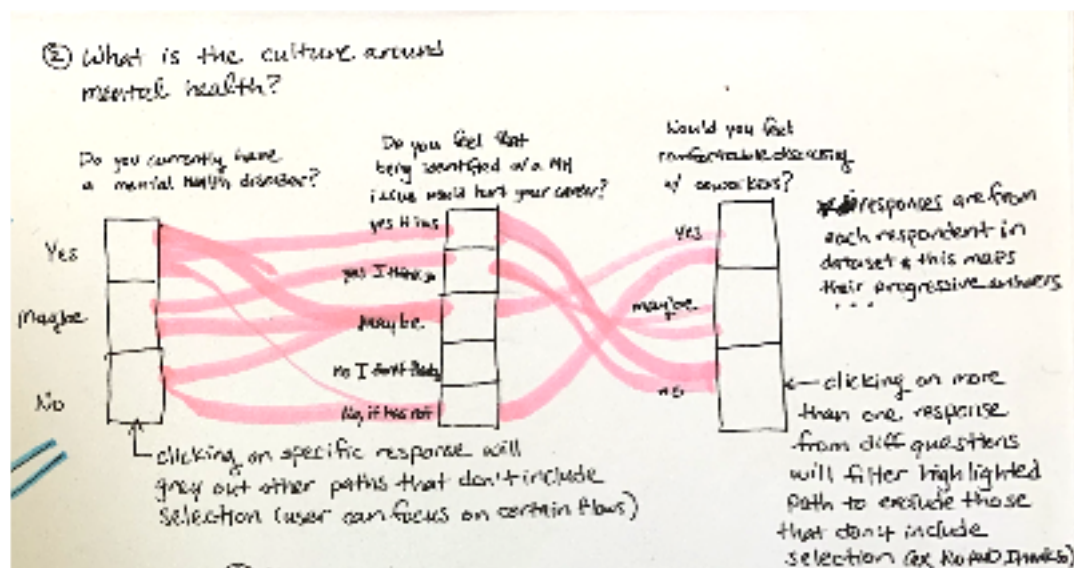 ② What is the culture around
mental health?
Do you currently have
a mental health disorder?
Do you feel that
being identified w/a MH
issue would hurt your career?
Would you feel
comfortable discussing
w/ coworkers?
Yes
Maybe
No
yes it has
yes I think so
Maybe
no I don't think
No, it has not
yes
maybe
no
responses are from
each respondent in
dataset & this maps
their progressive answers
...
clicking on specific response will
grey out other paths that don't include
selection (user can focus on certain flows)
← clicking on more
than one response
from diff questions
will filter highlighted
path to exclude those
that don't include
selection (ex No AND